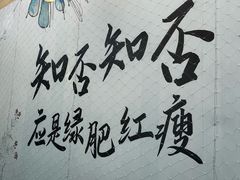 知否知否
应是绿肥红瘦